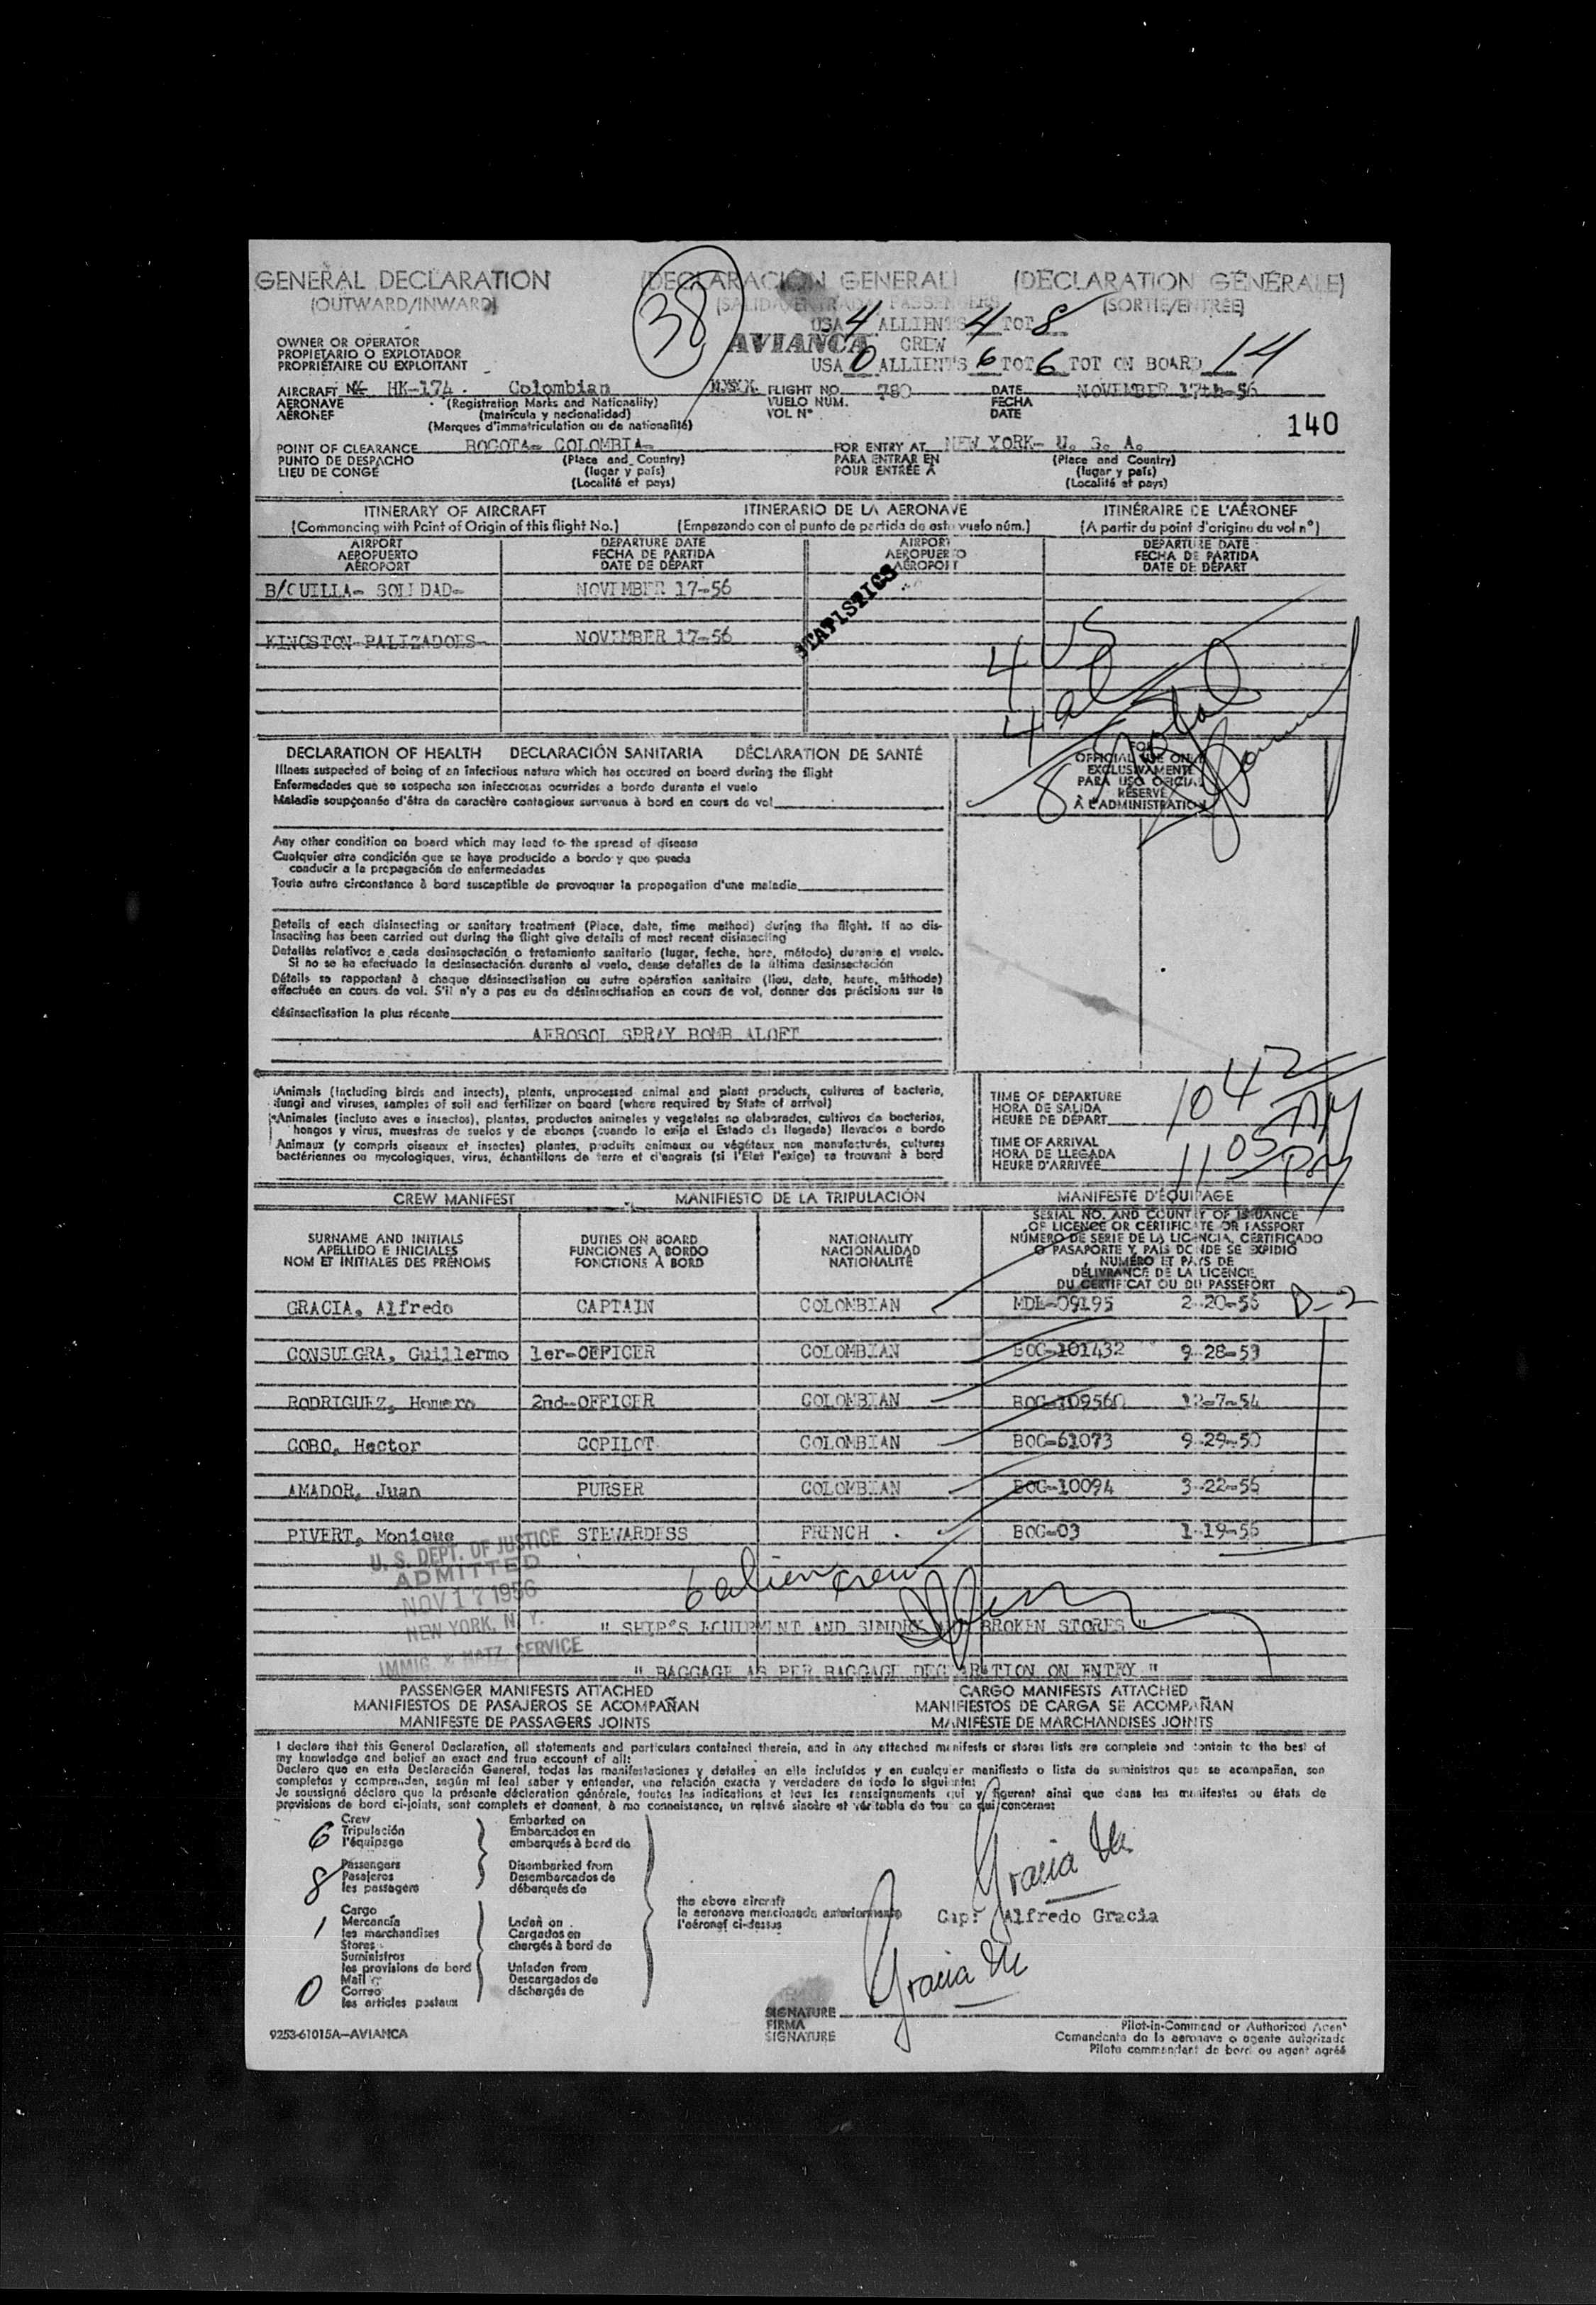 GENERAL DECLARATION (DECLARACIÓN GENERAL) (DÉCLARATION GÉNÉRALE)
(OUTWARD/INWARD) (SALIDA/ENTRADA) PASSENGERS (SORTIE/ENTRÉE)
38
USA 4 ALLIENTS 4 TOT 8
OWNER OR OPERATOR
PROPIETARIO O EXPLOTADOR
PROPRIÉTAIRE OU EXPLOITANT
AVIANCA CREW
USA 0 ALLIENTS 6 TOT 6 TOT ON BOARD 14
AIRCRAFT HK-174. Colombian FLIGHT NO. 780 DATE NOVEMBER 17th-56
AERONAVE (Registration Marks and Nationality) VUELO NÚM. FECHA
AÉRONEF (matrícula y nacionalidad) VOL N° DATE
(Marques d'immatriculation ou de nationalité)
140
POINT OF CLEARANCE BOGOTA- COLOMBIA- FOR ENTRY AT NEW YORK- U. S. A.
PUNTO DE DESPACHO (Place and Country) PARA ENTRAR EN (Place and Country)
LIEU DE CONGÉ (lugar y país) POUR ENTRÉE À (lugar y país)
(Localité et pays) (Localité et pays)
ITINERARY OF AIRCRAFT ITINERARIO DE LA AERONAVE ITINÉRAIRE DE L'AÉRONEF
(Commencing with Point of Origin of this flight No.) (Empezando con el punto de partida de este vuelo núm.) (A partir du point d'origine du vol n°)
AIRPORT DEPARTURE DATE AIRPORT DEPARTURE DATE
AEROPUERTO FECHA DE PARTIDA AEROPUERTO FECHA DE PARTIDA
AÉROPORT DATE DE DÉPART AÉROPORT DATE DE DÉPART
B/QUILLA- SOLEDAD- NOVEMBER 17-56
STATISTICS
KINGSTON-PALIZADOES- NOVEMBER 17-56
4 US
4 al
8 Total
DECLARATION OF HEALTH DECLARACIÓN SANITARIA DÉCLARATION DE SANTÉ
Illness suspected of being of an infectious nature which has occured on board during the flight
Enfermedades que se sospecha son infecciosas ocurridas a bordo durante el vuelo
Maladie soupçonnée d'être de caractère contagieux survenue à bord en cours de vol
FOR
OFFICIAL USE ONLY
EXCLUSIVAMENTE
PARA USO OFICIAL
RÉSERVÉ
À L'ADMINISTRATION
Any other condition on board which may lead to the spread of disease
Cualquier otra condición que se haya producido a bordo y que pueda
conducir a la propagación de enfermedades
Toute autre circonstance à bord susceptible de provoquer la propagation d'une maladie
Details of each disinsecting or sanitary treatment (Place, date, time method) during the flight. If no dis-
insecting has been carried out during the flight give details of most recent disinsecting
Detalles relativos a cada desinsectación o tratamiento sanitario (lugar, fecha, hora, método) durante el vuelo.
Si no se ha efectuado la desinsectación durante el vuelo, dense detalles de la última desinsectación
Détails se rapportant à chaque désinsectisation ou autre opération sanitaire (lieu, date, heure, méthode)
effectuée en cours de vol. S'il n'y a pas eu de désinsectisation en cours de vol, donner des précisions sur la
désinsectisation la plus récente
AEROSOL SPRAY BOMB ALOFT
Animals (including birds and insects), plants, unprocessed animal and plant products, cultures of bacteria,
fungi and viruses, samples of soil and fertilizer on board (where required by State of arrival)
Animales (incluso aves e insectos), plantas, productos animales y vegetales no elaborados, cultivos de bacterias,
hongos y virus, muestras de suelos y de abonos (cuando lo exija el Estado de llegada) llevados a bordo
Animaux (y compris oiseaux et insectes) plantes, produits animaux ou végétaux non manufacturés, cultures
bactériennes ou mycologiques, virus, échantillons de terre et d'engrais (si l'Etat l'exige) se trouvant à bord
TIME OF DEPARTURE
HORA DE SALIDA
HEURE DE DÉPART 1042 AM
TIME OF ARRIVAL
HORA DE LLEGADA
HEURE D'ARRIVÉE 1105 PM
CREW MANIFEST MANIFIESTO DE LA TRIPULACIÓN MANIFESTE D'ÉQUIPAGE
SURNAME AND INITIALS DUTIES ON BOARD NATIONALITY
APELLIDO E INICIALES FUNCIONES A BORDO NACIONALIDAD
NOM ET INITIALES DES PRÉNOMS FONCTIONS À BORD NATIONALITÉ
SERIAL NO. AND COUNTRY OF ISSUANCE
OF LICENCE OR CERTIFICATE OR PASSPORT
NÚMERO DE SERIE DE LA LICENCIA, CERTIFICADO
O PASAPORTE Y PAÍS DONDE SE EXPIDIÓ
NUMÉRO ET PAYS DE
DÉLIVRANCE DE LA LICENCE
DU CERTIFICAT OU DU PASSEPORT
GRACIA, Alfredo CAPTAIN COLOMBIAN MDE-09195 2-20-56 D-2
CONSUEGRA, Guillermo 1er-OFFICER COLOMBIAN BOG-101432 9-28-53
RODRIGUEZ, Homero 2nd-OFFICER COLOMBIAN BOG-109560 12-7-54
COBO, Hector COPILOT COLOMBIAN BOG-61073 9-29-50
AMADOR, Juan PURSER COLOMBIAN BOG-10094 3-22-56
PIVERT, Monique STEWARDESS FRENCH BOG-03 1-19-56
U. S. DEPT. OF JUSTICE
ADMITTED
NOV 17 1956
NEW YORK, N. Y.
IMMIG. & NATZ. SERVICE
6 alien crew
" SHIP'S EQUIPMENT AND SUNDRY BROKEN STORES "
" BAGGAGE AS PER BAGGAGE DECLARATION ON ENTRY "
PASSENGER MANIFESTS ATTACHED CARGO MANIFESTS ATTACHED
MANIFIESTOS DE PASAJEROS SE ACOMPAÑAN MANIFIESTOS DE CARGA SE ACOMPAÑAN
MANIFESTE DE PASSAGERS JOINTS MANIFESTE DE MARCHANDISES JOINTS
I declare that this General Declaration, all statements and particulars contained therein, and in any attached manifests or stores lists are complete and contain to the best of
my knowledge and belief an exact and true account of all:
Declaro que en esta Declaración General, todas las manifestaciones y detalles en ella incluidos y en cualquier manifiesto o lista de suministros que se acompañan, son
completos y comprenden, según mi leal saber y entender, una relación exacta y verdadera de todo lo siguiente:
Je soussigné déclare que la présente déclaration générale, toutes les indications et tous les renseignements qui y figurent ainsi que dans les manifestes ou états de
provisions de bord ci-joints, sont complets et donnent, à ma connaissance, un relevé sincère et véritable de tout ce qui concerne:
6 Crew Embarked on
Tripulación Embarcados en
l'équipage embarqués à bord de
8 Passengers Disembarked from
Pasajeros Desembarcados de
les passagers débarqués de
1 Cargo
Mercancía
les marchandises
Laden on
Cargados en
chargés à bord de
the above aircraft
la aeronave mencionada anteriormente
l'aéronef ci-dessus
Gracia
Cap: Alfredo Gracia
Stores
Suministros
les provisions de bord
Unladen from
Descargados de
déchargés de
0 Mail
Correo
les articles postaux
Gracia
SIGNATURE
FIRMA
SIGNATURE
Pilot-in-Command or Authorized Agent
Comandante de la aeronave o agente autorizado
Pilote commandant de bord ou agent agréé
9253-61015A—AVIANCA